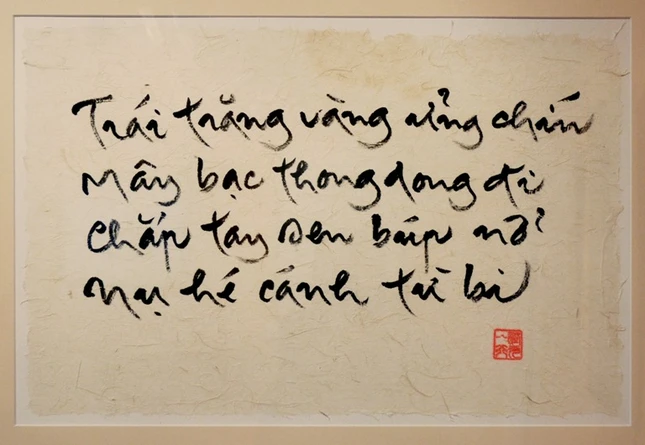 Trái trăng vàng ửng chín
Mây bạc thong dong đi
chắp tay sen búp nở
nụ hé cánh từ bi